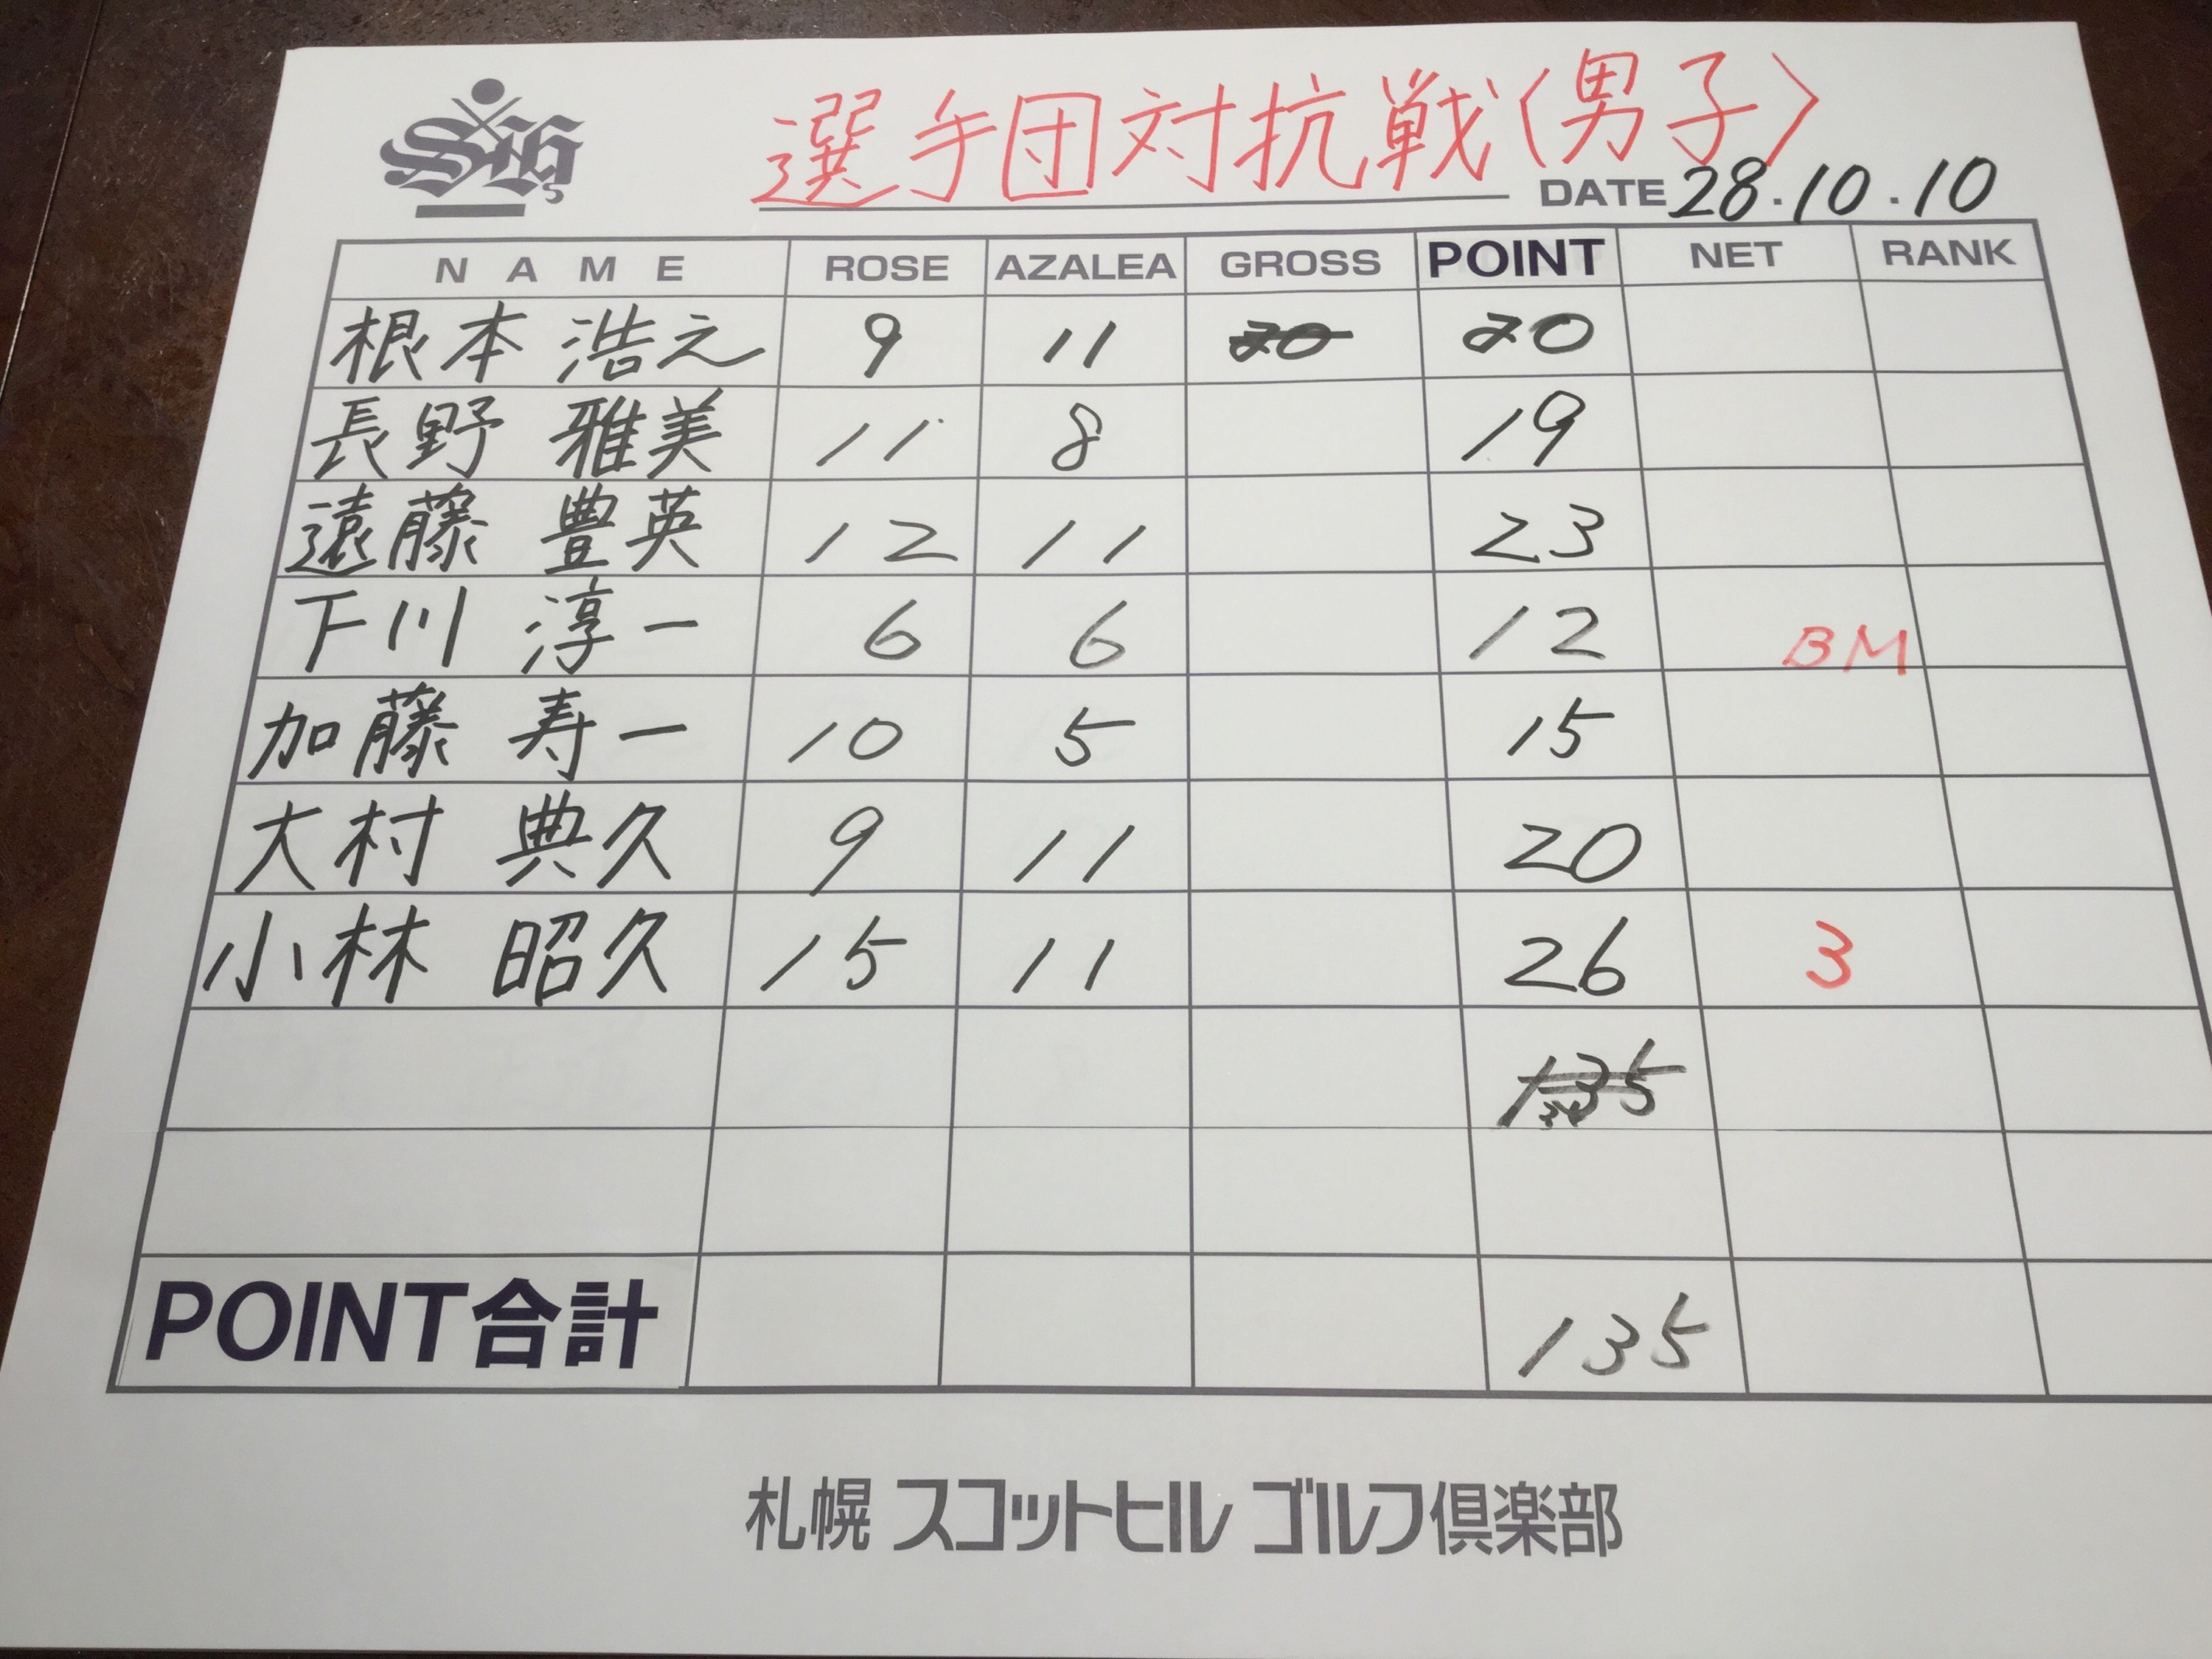 選手団対抗戦(男子)
DATE 28.10.10
NAME ROSE AZALEA GROSS POINT NET RANK
根本 浩之 9 11 20 20
長野 雅美 11 8 19
遠藤 豊英 12 11 23
下川 淳一 6 6 12 BM
加藤 寿一 10 5 15
大村 典久 9 11 20
小林 昭久 15 11 26 3
135
POINT合計 135
札幌 スコットヒル ゴルフ倶楽部